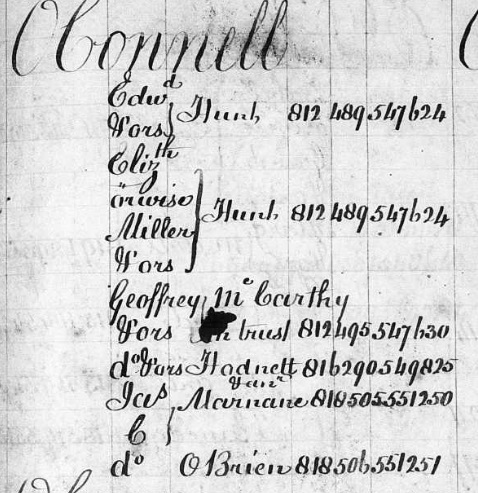 OConnell
Edwd
Vors } Hunt 812 489 547624
Elizth
orwise
Miller } Hunt 812 489 547624
Vors
Geoffrey } Mc Carthy
Vors in trust 812 495 547630
do Vors Hodnett 816 290 549825
Jas } Marnane & anr 818 505 551250
C
do OBrien 818 506 551251